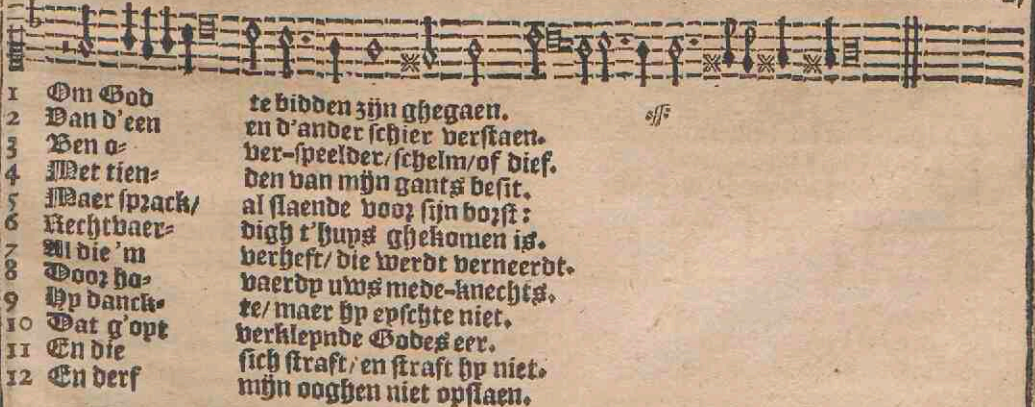 1 Om God te bidden zijn ghegaen.
2 Van d'een en d'ander schier verstaen.
3 Ben o- ver-speelder/schelm/of dief.
4 Met tien- den van mijn gants besit.
5 Maer sprack/ al slaende voor sijn borst:
6 Rechtvaer- digh t'huys ghekomen is.
7 Al die 'm verheft/die werdt verneerdt.
8 Door ho- vaerdy uws mede-knechts.
9 Hy danck- te/maer hy eyschte niet.
10 Dat g'opt verkleynde Godes eer.
11 En die sich straft/en straft hy niet.
12 En derf mijn ooghen niet opslaen.